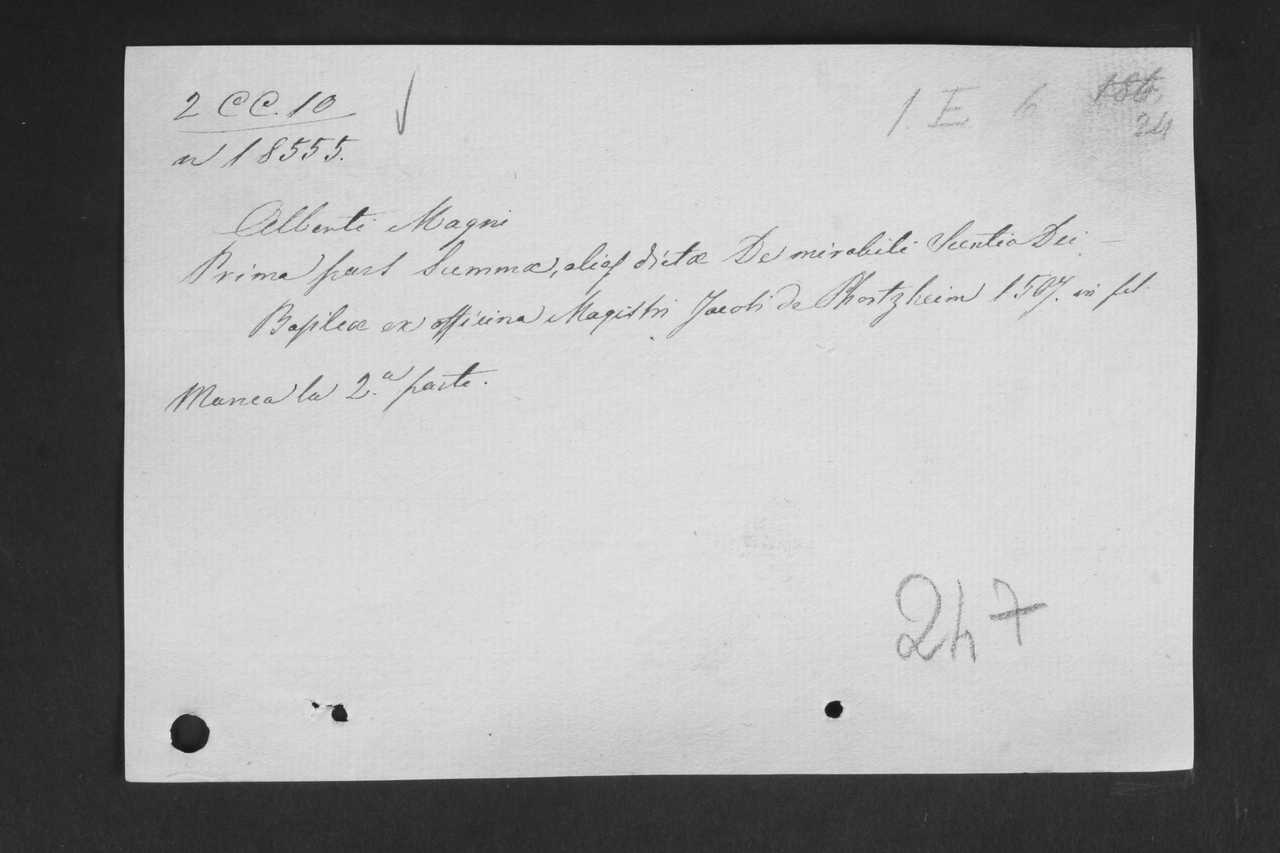 2 CC. 10
1 E h
24
n 18555.
Alberti Magni
Prima pars Summæ, alias dictæ De mirabili Scientia Dei –
Basileæ ex officina Magistri Jacobi de Phortzheim 1507. in fol.
Manca la 2.a parte.
247